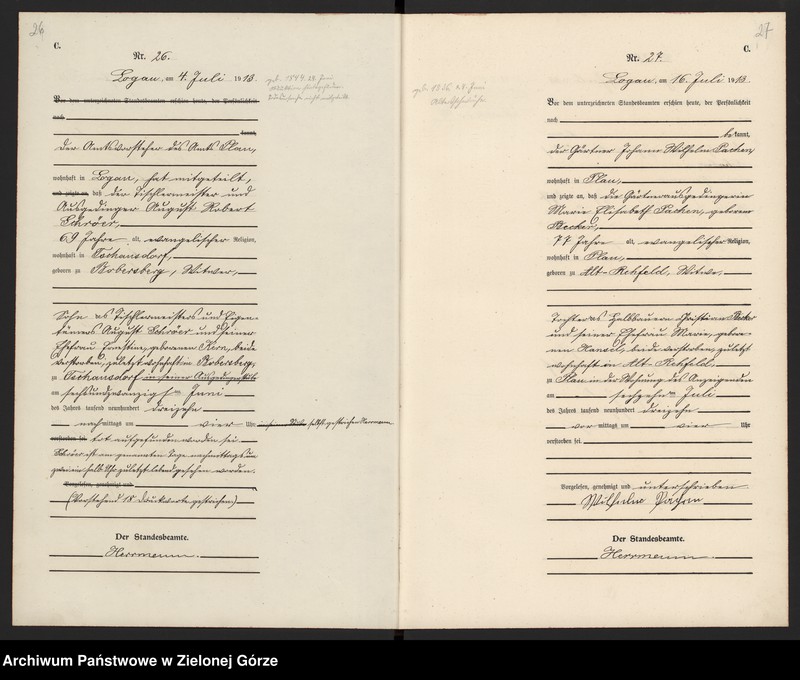 26
C.
Nr. 26.
Logau, am 4. Juli 1913.
Vor dem unterzeichneten Standesbeamten erschien heute, der Persönlichkeit
nach
kannt,
der Amtsvorsteher des Amts Plau,
wohnhaft in Logau, hat mitgeteilt,
und zeigte an, daß der Tischlermeister und
Ausgedinger August Robert
Schröer,
69 Jahre alt, evangelischer Religion,
wohnhaft in Tschausdorf,
geboren zu Bobersberg, Witwer,
Sohn des Tischlermeisters und Eigen-
tümers August Schröer und seiner
Ehefrau Ernestine, geborenen Kern, beide
verstorben, zuletzt wohnhaft in Bobersberg,
zu Tschausdorf in seiner
am sechsundzwanzigsten Juni
des Jahres tausend neunhundert dreizehn
nachmittags um vier Uhr
verstorben sei. tot aufgefunden worden sei.
Schröer ist am genannten Tage nachmittags um
zwei ein halb Uhr zuletzt lebend gesehen worden.
Vorgelesen, genehmigt und
(Vorstehend 18 Druckworte gestrichen)
Der Standesbeamte.
Herrmann.
geb. 1844 28 Juni
gestrichen Herrmann
27
C.
Nr. 27.
Logau, am 16. Juli 1913.
Vor dem unterzeichneten Standesbeamten erschien heute, der Persönlichkeit
nach
bekannt,
der Gärtner Johann Wilhelm Pachen,
wohnhaft in Plau,
und zeigte an, daß die Gärtnerausgedingerin
Marie Elisabeth Pachen, geborene
Becker,
77 Jahre alt, evangelischer Religion,
wohnhaft in Plau,
geboren zu Alt-Rehfeld, Witwe,
Tochter des Halbbauern Christian Becker
und seiner Ehefrau Marie, gebore-
nen beide verstorben, zuletzt
wohnhaft in Alt-Rehfeld,
zu Plau in der Wohnung des Anzeigenden
am sechzehnten Juli
des Jahres tausend neunhundert dreizehn
vormittags um vier Uhr
verstorben sei.
Vorgelesen, genehmigt und unterschrieben
Wilhelm Pachen
Der Standesbeamte.
Herrmann.
Archiwum Państwowe w Zielonej Górze